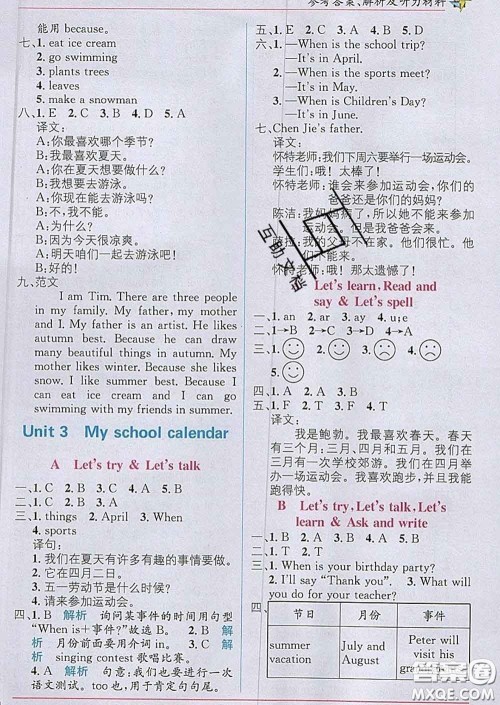 参考答案、解析及听力材料
能用 because。
七、1. eat ice cream
2. go swimming
3. plants trees
4. leaves
5. make a snowman
八、1. E 2. C 3. B 4. D 5. A
译文：
A:你最喜欢哪个季节?
B:我最喜欢夏天。
A:你在夏天想要做什么?
B:我想要去游泳。
A:你在秋天能去游泳吗?
B:不,我不能。
A:为什么?
B:因为今天很凉爽。
A:明天咱们一起去游泳吧!
B:好的!
九、范文
I am Tim. There are three people
in my family. My father, my mother
and I. My father is an artist. He likes
autumn best. Because he can draw
many beautiful things in autumn. My
mother likes winter. Because she likes
snow. I like summer best. Because I
can eat ice cream and I can go
swimming with my friends in summer.
Unit 3 My school calendar
A Let's try & Let's talk
一、1. C 2. B 3. C 4. A 5. B
二、1. C 2. B 3. A
三、1. things 2. April 3. When
4. sports
译句：
1. 我们在夏天有许多有趣的事情要做。
2. 它在四月二日。
3. 五一劳动节是什么时候?
4. 请来参加运动会。
四、1. B 解析 询问某事件的时间用句型
“When is+事件?”故选 B。 2. B 解
析 月份前面要用介词 in。 3. C 解析
singing contest 歌唱比赛。
4. A 解析 句意:我们也要进行一次
语文测试。too 也,用于肯定句句尾。
五、1. E 2. D 3. A 4. C 5. B
六、1. —When is the school trip?
—It's in April.
2. —When is the sports meet?
—It's in May.
3. —When is Children's Day?
—It's in June.
七、Chen Jie's father.
译文：
怀特老师:我们下周六要举行一场运动会。
学生们:哦! 太棒了!
怀特老师:谁会来参加运动会,你们的
爸爸还是你们的妈妈?
陈洁:我妈妈病了,所以她不能来参加
运动会。但是我爸爸会来。
萨拉:我的父母不在家。他们很忙。他
们不能来。
怀特老师:哦! 那太遗憾了!
Let's learn, Read and
say & Let's spell
一、1. an 2. ar 3. ay 4. u e
二、1→B 2→D 3→A 4→C
三、1. 2. 3. 4.
5.
四、1. A 2. A 3. B 4. A 5. B
五、1. F 2. T 3. F 4. F 5. T
译文：
我是鲍勃。我最喜欢春天。春天
有三个月。三月、四月和五月。我们
在三月有一次学校郊游。我们在四月
举办一场运动会。我喜欢跑步,并且我
能跑得快。
B Let's try, Let's talk, Let's
learn & Ask and write
一、1. B 2. A 3. B 4. A 5. B
二、1. A 2. B 3. A
三、1. When is your birthday party?
2. I'll say “Thank you”. 3. What will
you do for your teacher?
四、
节日 月份 事件
summer vacation July and August Peter will visit his
互助文档
答案圈
MXQE.COM